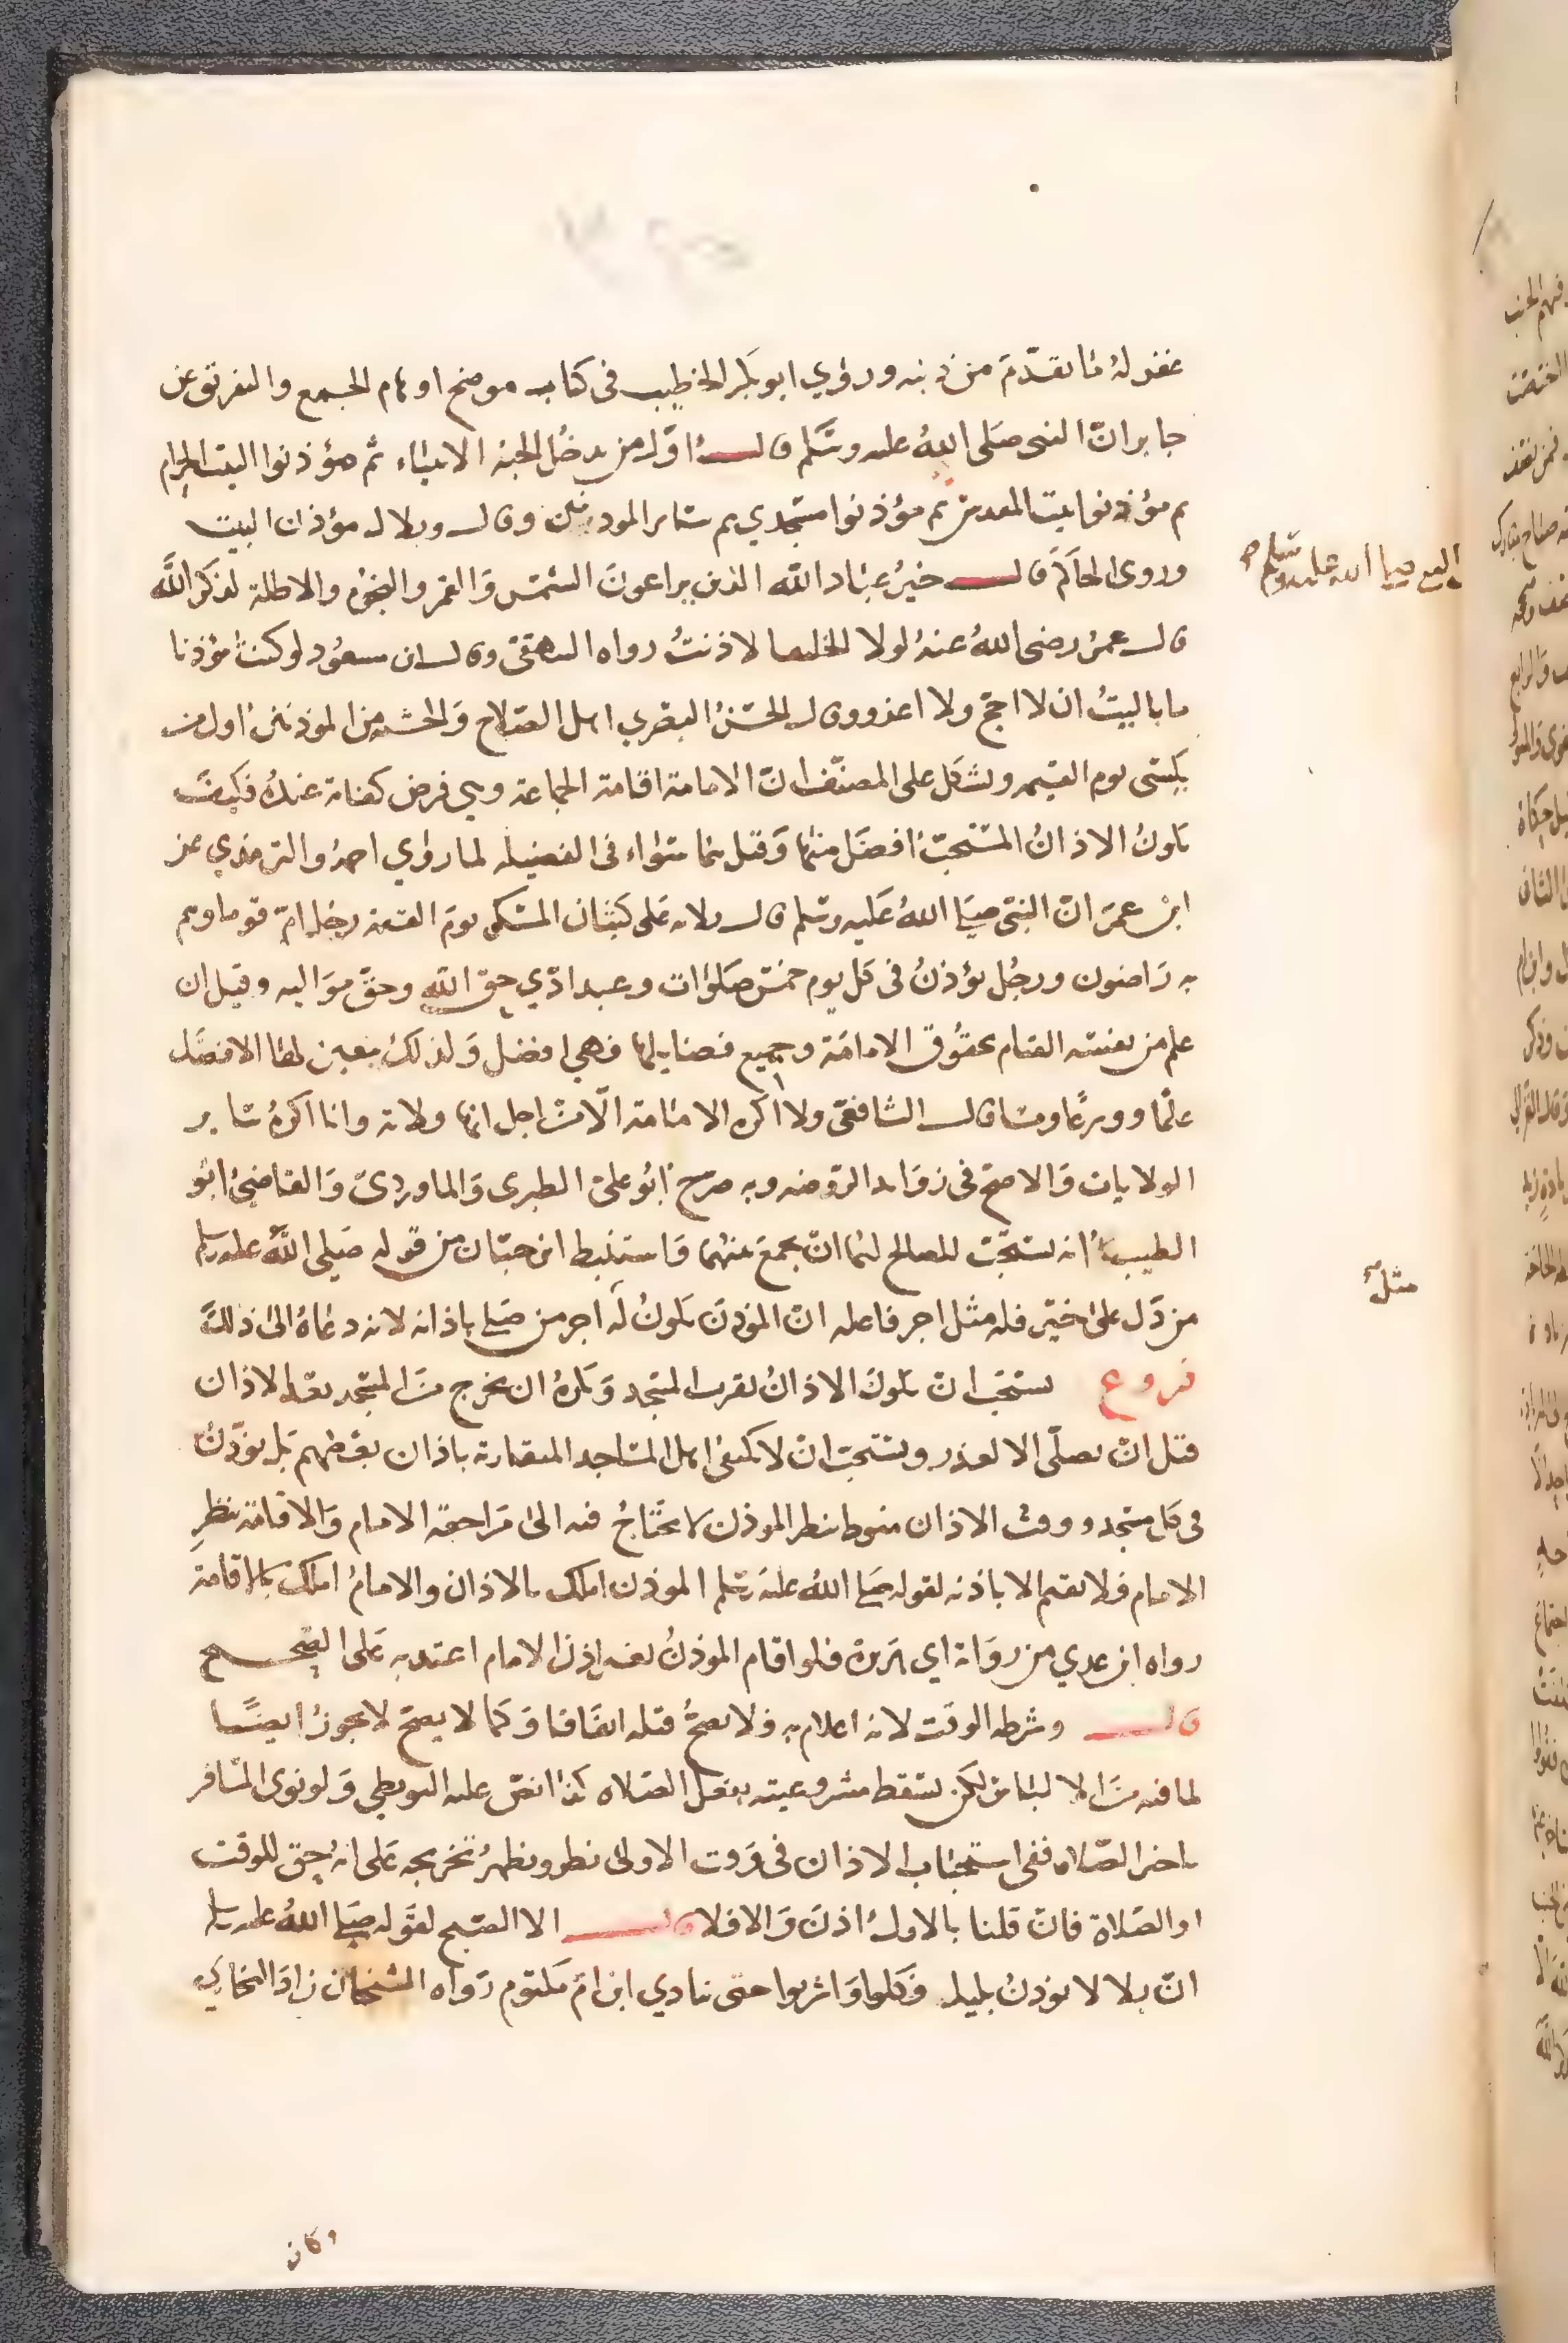 غفر له ما تقدّم من ذنبه وروي ابو بكر الخطيب في كتاب موضح اوهام الجمع والتفريق عن
جابر انّ النبي صلى الله عليه وسلم قال اوّل من يدخل الجنة الانبياء ثم مؤذنوا البيت الحرام
ثم مؤذنوا بيت المقدس ثم مؤذنوا مسجدي ثم سائر الموذنين وقال وبلال مؤذن البيت
وروى الحاكم قال خيرُ عباد الله الذين يراعون الشمس والقمر والنجوم والاظلة لذكر الله
النبي صلى الله عليه وسلم صح
قال عمر رضي الله عنه لولا الخليفا لاذنتُ رواه البيهقي وقال ابن مسعود لو كنت مؤذنا
ما باليتُ ان لا احج ولا اغزو وقال الحسنُ البصري اهل الصلاح والحسبة من الموذنين اول من
يكسى يوم القيمة ويشكل على المصنّف انّ الامامة اقامة الجماعة وهي فرض كفاية عنده فكيف
يكون الاذانُ المستحبّ افضل منها وقيل هما سواء في الفضيلة لما روي احمد والترمذي عن
ابن عمر انّ النبي صلى الله عليه وسلم قال ثلاثة على كثبان المسك يوم القيمة رجل امّ قوما وهم
به راضون ورجُل يؤذنُ في كل يوم خمس صلوات وعبد ادّي حق الله وحقّ مواليه وقيل ان
علم من نفسه القيام بحقُوق الامامة وجميع فضايلها فهي افضل ولذلك بعين لها الافضل
علما وورعًا وسنا قال الشافعي ولا اكره الامامة الّا من اجل انها ولاية وانا اكرهُ سائر
الولايات والاصح في زوايد الروضه وبه صرح ابُو علي الطبري والماوردي والقاضي ابُو
الطيب انه يستحّب للصالح لهما انّ يجمع بينهما واستنبط ابن حبّان من قوله صلى الله عليه وسلم
من دَل على خير فله مثل اجر فاعله انّ المؤذن يكونُ له اجر من صلى باذانه لانه دعاهُ الى ذلك
مثل صح
فروع يستحب ان يكون الاذانُ بقرب المسجد ويكرهُ ان يخرج من المسجد بعد الاذان
قبل انّ يصلّي الا لعذر ويستحب انّ لا يكتفي اهل المساجد المتقاربة باذان بعضهم بل يؤذّنُ
في كل مسجد ووقت الاذان منوط بنظر الموذن لا يحتاجُ فيه الى مراجعة الامام والاقامة بنظر
الامام فلا يقيم الا باذنه لقوله صلى الله عليه وسلم الموذن املك بالاذان والامامُ املك بالاقامة
رواه ابن عدي من رواية ابي هريرة فلو اقام الموذنُ بغير اذن الامام اعتد به على الصحيح
قال وشرطه الوقت لانه اعلام به فلا يصحُّ قبله اتفاقا وكما لا يصح لا يجوز ايضًا
لما فيه من الالباس لكن تسقط مشروعيته بفعل الصلاه كذا نصّ عليه البويطي ولو نوى المسافر
تاخير الصّلاه ففي استحباب الاذان في وقت الاولى نظر ويظهرُ تخريجه على انه حق للوقت
او الصلاة فان قلنا بالاول اذن والا فلا قال الا الصبح لقوله صلى الله عليه وسلم
انّ بلالا يؤذنُ بليل فكلوا واشربوا حتى ينادي ابن ام مكتوم رواه الشيخان زاد البخاري
وكان